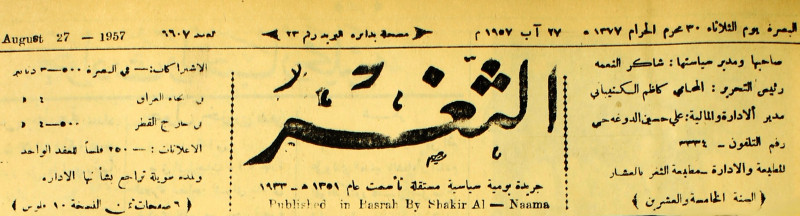 البصرة يوم الثلاثاء ٣٠ محرم الحرام ١٣٧٧ ه ٢٧ آب ١٩٥٧ م مسجلة بدائرة البريد رقم ٢٣ العدد ٦٦٠٧ August 27 - 1957
صاحبها ومدير سياستها : شاكر النعمه
رئيس التحرير : المحامي كاظم الكنيباني
مدير الادارة والمالية : علي حسين الدوغه جي
رقم التلفون - ٣٣٣٤
المطبعة والادارة - مطبعة الثغر بالعشار
( السنة الخامسة والعشرين )
الثغر
جريدة يومية سياسية مستقلة تأسست عام ١٣٥١ ه - ١٩٣٣
Published in Basrah By Shakir Al - Naama
الاشتراكات : - في البصرة ٥٠٠-٣ دنانير
انحاء العراق ٤ د
خارج القطر ٥٠٠-٤ د
الاعلانات : - ٢٥٠ فلساً للعقد الواحد
ولمده طويلة تراجع بشأنها الاداره
( ٦ صفحات ثمن النسخة ١٠ فلوس )